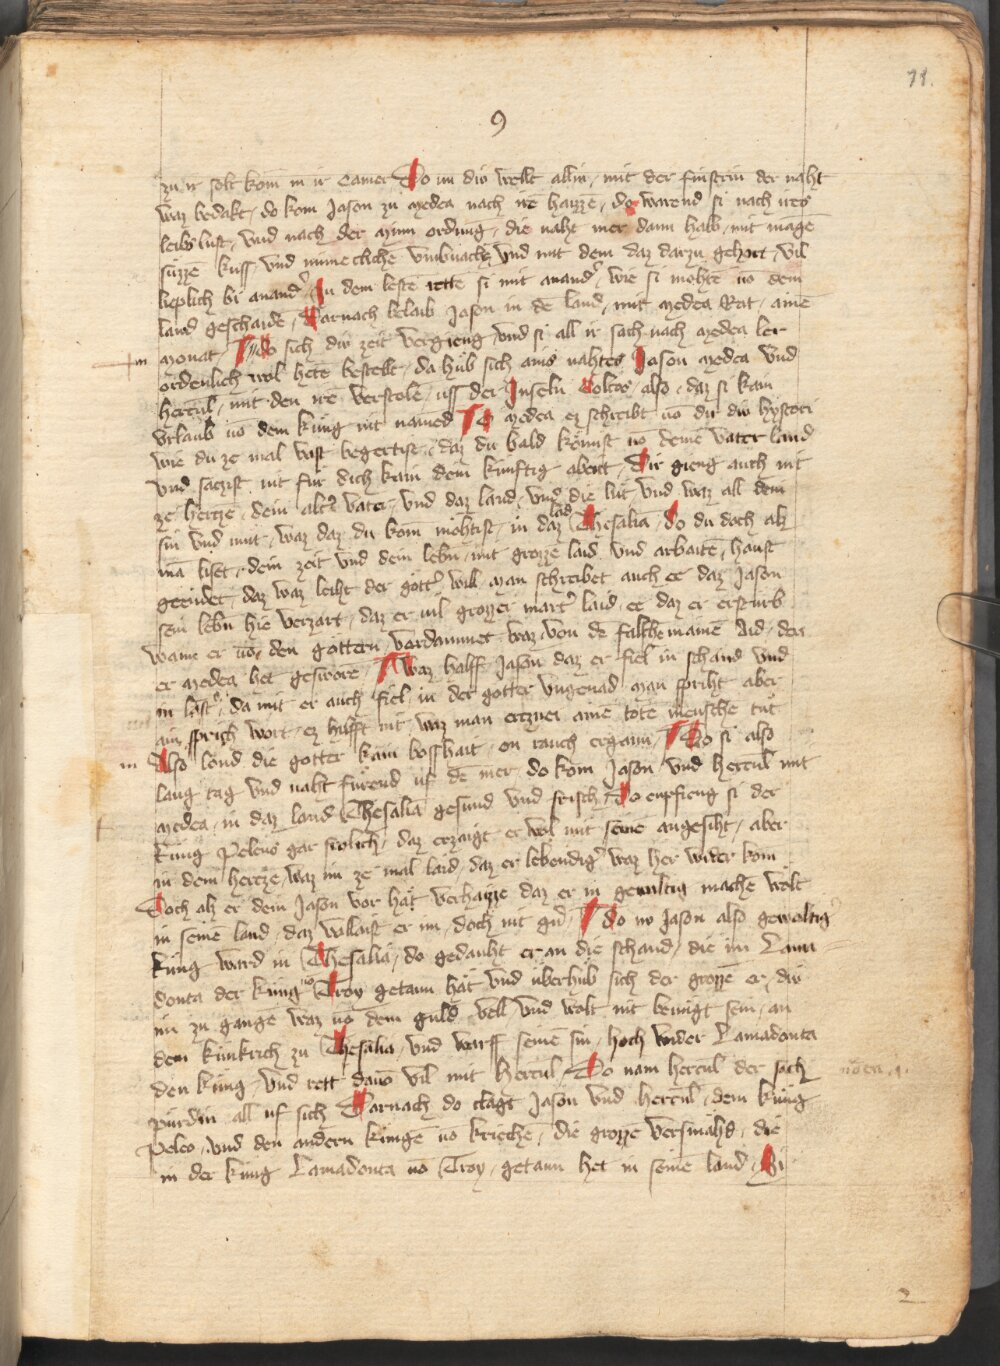 71.
9
zu ir solt kom in ir Camer Do im diu welt allin, mit der finstrin der naht
waz bedakt, do kom Jason zu Medea nach irē haizze, do warend si nach ires
leibs lust, vnd nach der Minn ordnūg, die naht mer dann halb, mit māgē
süzzē kuss, vnd minneclichē vmbvachē vnd mit dem daz darzu gehort, vil
lieplich bi anandˀ, In dem lestē rettē si mit anandˀ, wie si mohtē vō dem
land geschaidē, Darnach belaib Jason in dē land, mit Medea Rat, ainē
Monat, Do sich diu zeit vergieng, vnd si all ir sach nach Medea ler
ordenlich wol hetē bestellt, da hub sich ains nahtes Jason Medea vnd
hercul, mit den irē verstolē, uss der Inseln Colcos, also, daz si kain
vrlaub vō dem kūng nit namēd O Medea ez schreibt vō dir diu hystori
wie du ze mal vast begertist, daz du bald kömst vō deinē vater land
vnd sachst nit für dich kain dem künftig abent, Dir gieng auch nit
ze hertzē, dein altˀ vater, vnd daz land, vnd die lüt, vnd waz all dem
sin vnd mut, waz daz du kom möhtist, in daz land Thesalia, Do du doch alz
mā liset, dein zeit vnd dein lebn, mit grozze laid vnd arbaitē, haust
geendet, daz waz leiht der gottˀ will Man schreibet auch ee daz Jason
sein lebn hie verzart, daz er vil grozzer martˀ laid, ee daz er ersturb
wann er vō den gottern, verdammet waz, von dē falsche mainē Aid, den
er Medea het gesworē, Waz halff Jason daz er fiel in schand vnd
in lastˀ, da mit er auch fiel, in der gotter vngenad man spriht aber
ain sprich wort, ez hilfft nit, waz man ertznei ainē totē menschē tut
Also lond die gotter kain bosshait, on rauch ergann, Do si also
lang tag vnd naht fürend uf dē mer, do kom Jason, vnd hercul mit
Medea, in daz land Thesalia gesund vnd frisch, Do enpfieng si der
küng Peleus gar frolich, daz erzaigt er wol mit seinē angesiht, aber
in dem hertze, waz im ze mal laid, daz er lebendigˀ waz her wider kom
Doch alz er dem Jason vor hät verhaizze daz er in gewaltig machē wölt
in seinē land, daz vollaist er im, doch nit gnˀ, Do nw Jason also gewaltigˀ
küng ward in Thesalia, do gedauht er an die schand, die im Lama
donta der küng vō Troy getann hät vnd überhub sich der grozzē er, diu
im zu gange waz vō dem guld vell vnd wolt nit benügt sein, an
dem künkrich zu Thesalia, vnd warff seinē sin, hoch wider Lamadonta
den küng, vnd rett dauō vil mit hercul, Do nam hercul der sach
pürdin all uf sich Darnach do clagt Jason vnd hercul, dem küng
Peleo, vnd den andern küngē vō kriechē, die grozze versmähd, die
in der küng Lamadonta vō Troy, getann het in seinē land, Si
2